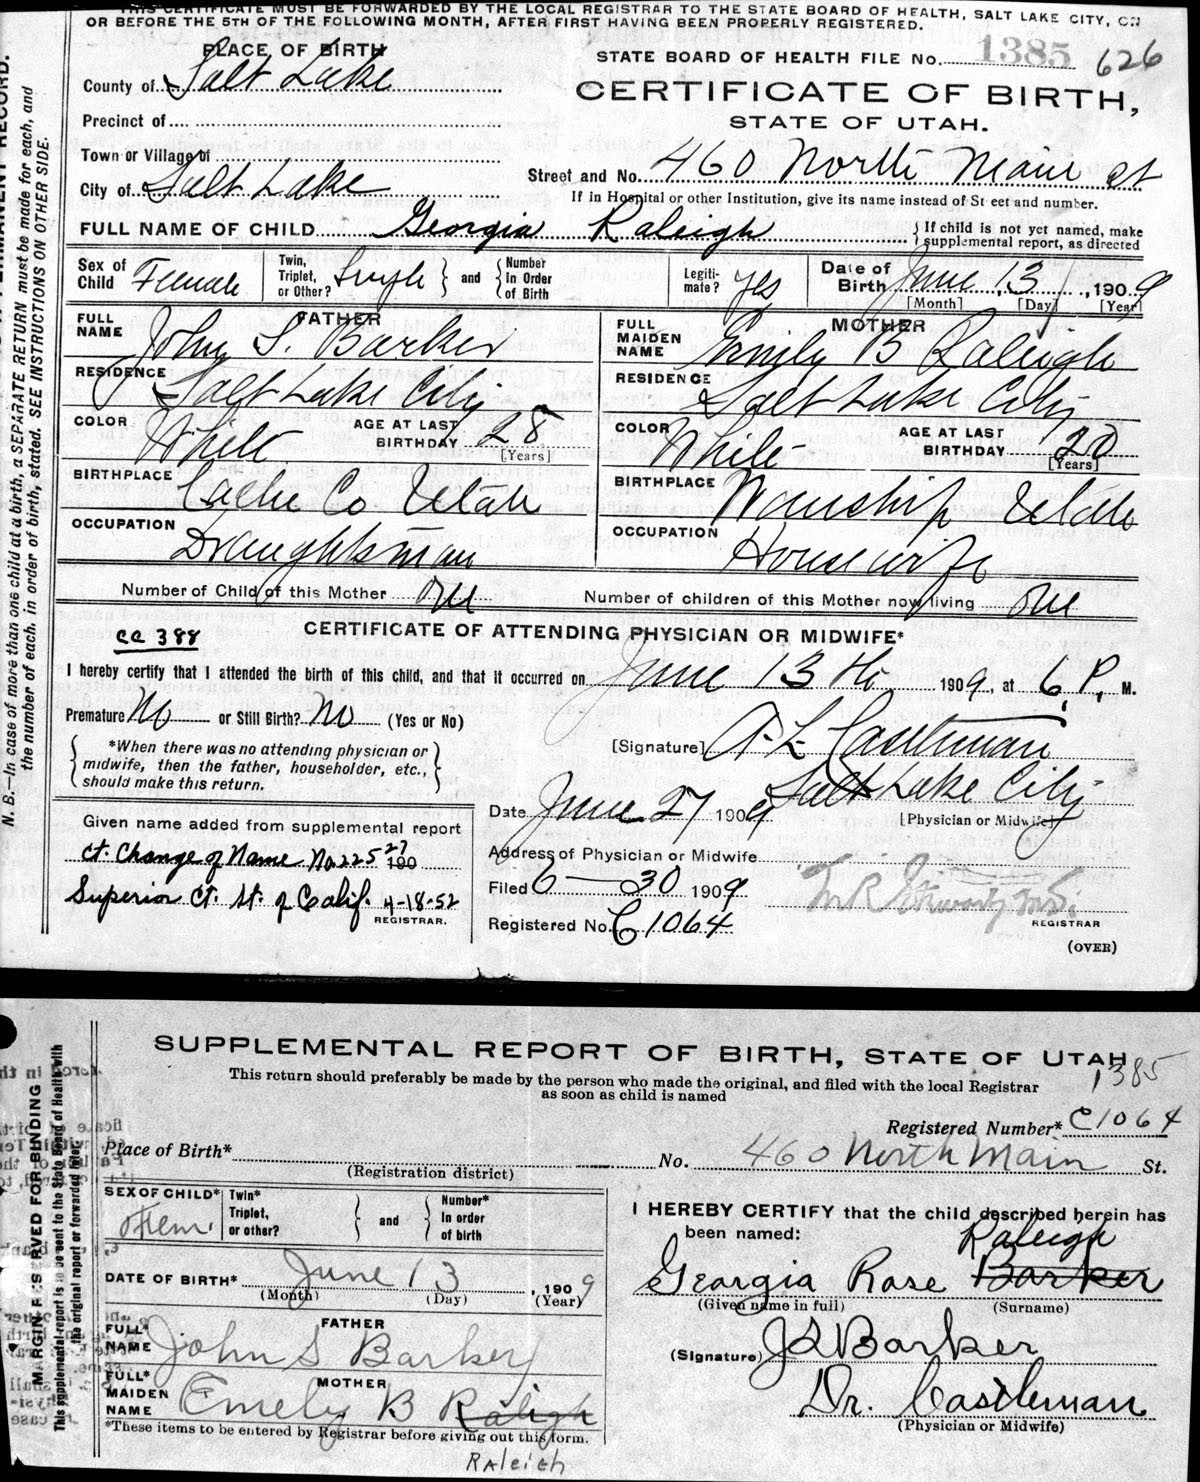 THIS CERTIFICATE MUST BE FORWARDED BY THE LOCAL REGISTRAR TO THE STATE BOARD OF HEALTH, SALT LAKE CITY, ON
OR BEFORE THE 5TH OF THE FOLLOWING MONTH, AFTER FIRST HAVING BEEN PROPERLY REGISTERED.
PLACE OF BIRTH
STATE BOARD OF HEALTH FILE No. 1385 626
County of Salt Lake
CERTIFICATE OF BIRTH,
STATE OF UTAH.
Precinct of
Town or Village of
Street and No. 460 North Main st
City of Salt Lake
If in Hospital or other Institution, give its name instead of St eet and number.
FULL NAME OF CHILD Georgia Raleigh
If child is not yet named, make
supplemental report, as directed
Sex of Child Female
Twin, Triplet, or Other? Single and Number In Order of Birth
Legiti-mate? yes
Date of Birth June 13, 1909
[Month] [Day] [Year]
FATHER
FULL NAME John S. Barker
RESIDENCE Salt Lake City
COLOR White AGE AT LAST BIRTHDAY 28 [Years]
BIRTHPLACE Cache Co Utah
OCCUPATION Draughtsman
MOTHER
FULL MAIDEN NAME Emily B Raleigh
RESIDENCE Salt Lake City
COLOR White AGE AT LAST BIRTHDAY 20 [Years]
BIRTHPLACE Wanship Utah
OCCUPATION Housewife
Number of Child of this Mother one Number of children of this Mother now living one
CC 388
CERTIFICATE OF ATTENDING PHYSICIAN OR MIDWIFE*
I hereby certify that I attended the birth of this child, and that it occurred on June 13th 1909, at 6, P. M.
Premature No or Still Birth? No (Yes or No)
*When there was no attending physician or
midwife, then the father, householder, etc.,
should make this return.
[Signature] A. L. Castleman
Salt Lake City
[Physician or Midwife]
Date June 27 1909
Given name added from supplemental report
Ct. Change of Name No 22527 190
Superior Ct. St. of Calif. 4-18-52
REGISTRAR.
Address of Physician or Midwife
Filed 6—30 1909
Registered No. C1064
REGISTRAR
(OVER)
N. B.—In case of more than one child at a birth, a SEPARATE RETURN must be made for each, and
the number of each, in order of birth, stated. SEE INSTRUCTIONS ON OTHER SIDE.
PERMANENT RECORD.
SUPPLEMENTAL REPORT OF BIRTH, STATE OF UTAH
1385
This return should preferably be made by the person who made the original, and filed with the local Registrar
as soon as child is named
Registered Number* C1064
Place of Birth* No. 460 North Main St.
(Registration district)
SEX OF CHILD* Fem.
Twin* Triplet, or other? and Number* In order of birth
DATE OF BIRTH* June 13, 1909
(Month) (Day) (Year)
FATHER
FULL* NAME John S Barker
MOTHER
FULL* MAIDEN NAME Emely B Raligh
*These items to be entered by Registrar before giving out this form.
Raleigh
I HEREBY CERTIFY that the child described herein has
been named:
Raleigh
Georgia Rose Barker
(Given name in full) (Surname)
(Signature) J S Barker
Dr. Castleman
(Physician or Midwife)
MARGIN RESERVED FOR BINDING
This supplemental report is to be sent to the State Board of Health with
the original report or forwarded later.